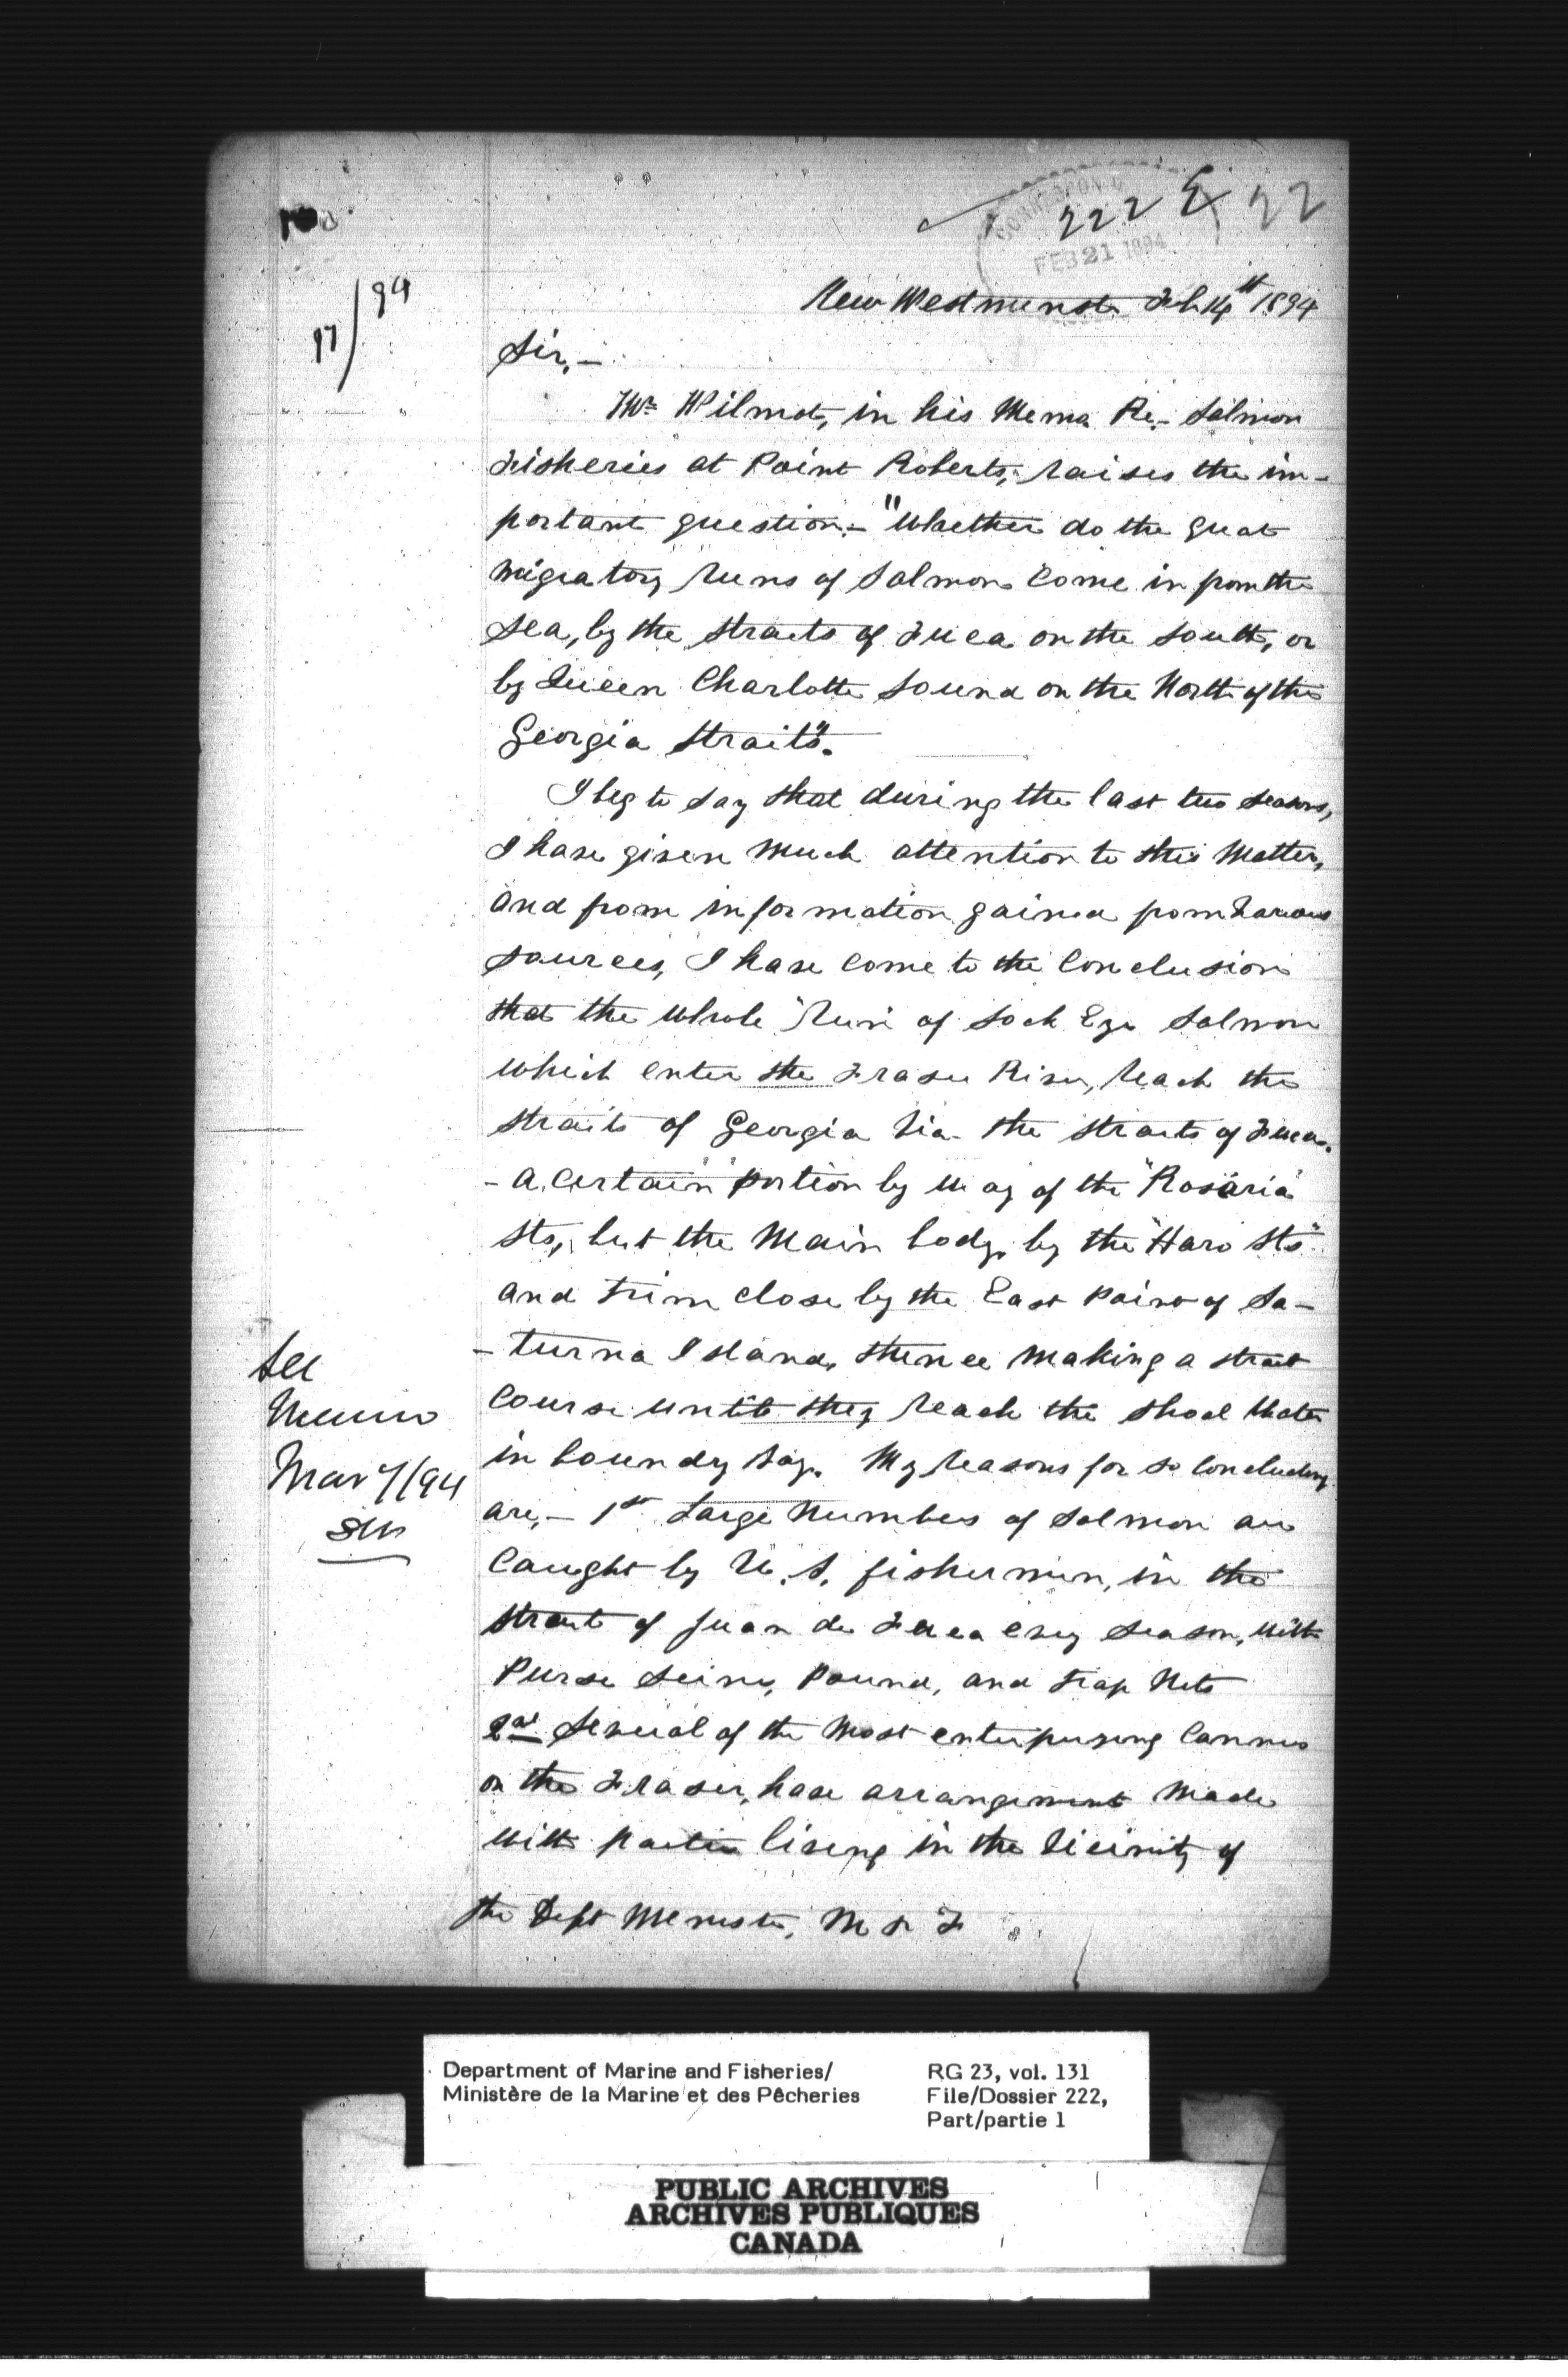 222 E 22
CORRESPOND
FEB 21 1894
97/94
New Westminster Feb 14th 1894
Sir,—
Mr Wilmot, in his Memo Re,- Salmon
Fisheries at Point Roberts; raises the im-
portant question:- "Whether do the great
migratory runs of Salmon come in from the
sea, by the straits of Fuca on the South, or
by Queen Charlotte Sound on the North of the
Georgia Straits".
I beg to say that during the last two seasons,
I have given much attention to this matter,
and from information gained from various
sources, I have come to the conclusion
that the whole "run" of Sock Eye Salmon
which enter the Fraser River, reach the
straits of Georgia via the straits of Fuca.
- a "certain" portion by way of the "Rosaria"
sts, but the main body, by the "Haro Sts"
and trim close by the East point of Sa-
- turna Island, thence making a strait
course until they reach the shoal water
in boundy bay. My reasons for so concluding
are,- 1st Large numbers of Salmon are
caught by U.S. fishermen, in the
strait of Juan de Fuca every season, with
Purse Seines, Pound, and trap nets
2nd Several of the most enterprising canners
on the Fraser, have arrangement made
with parties living in the vicinity of
the Dept Minister, M & F
See
Memo
Mar 7/94
Department of Marine and Fisheries/
Ministère de la Marine et des Pêcheries
RG 23, vol. 131
File/Dossier 222,
Part/partie 1
PUBLIC ARCHIVES
ARCHIVES PUBLIQUES
CANADA